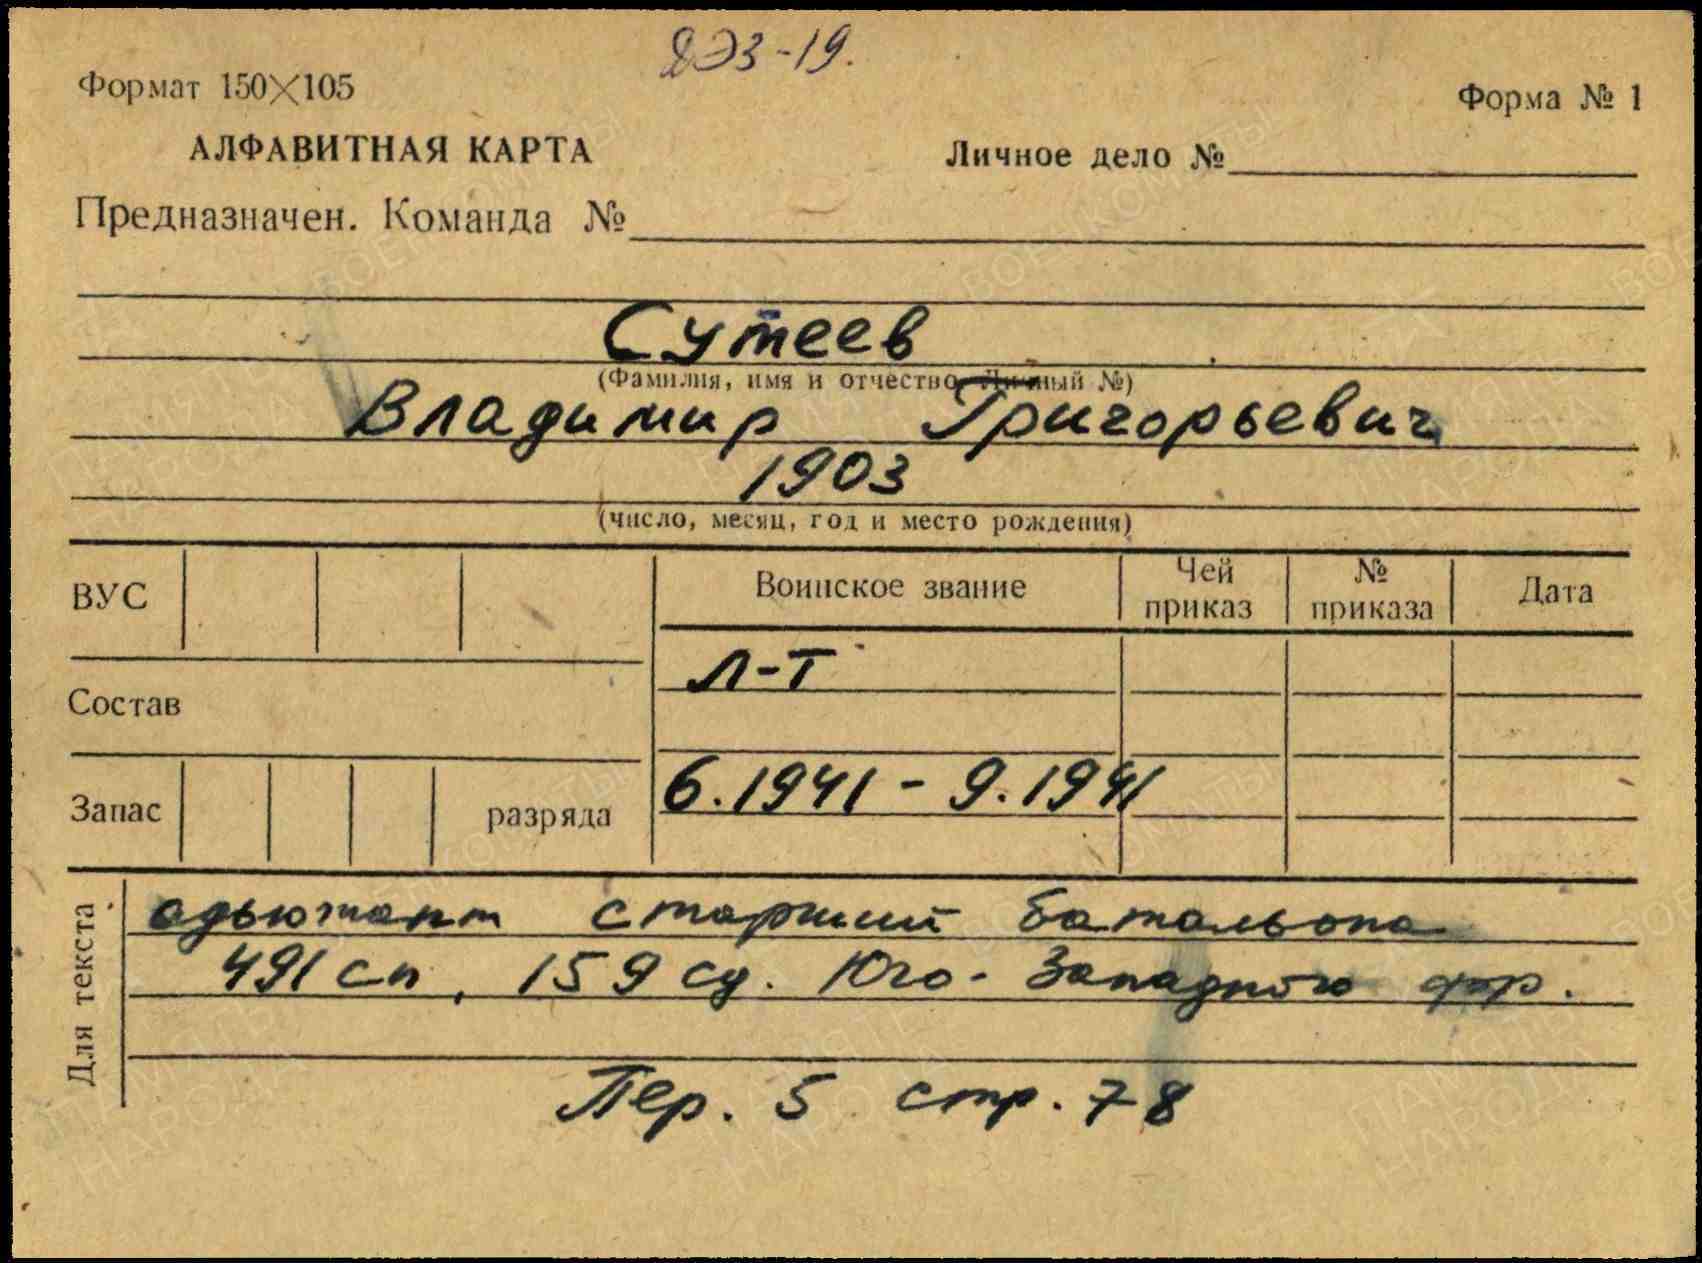 ДЭЗ-19.
Формат 150×105
Форма № 1
АЛФАВИТНАЯ КАРТА
Личное дело №
Предназначен. Команда №
Сутеев
(Фамилия, имя и отчество, Личный №)
Владимир Григорьевич
1903
(число, месяц, год и место рождения)
ВУС
Воинское звание
Чей приказ
№ приказа
Дата
л-т
Состав
6.1941 - 9.1941
Запас
разряда
Для текста
адьютант старший батальона
491 сп, 159 сд. Юго-Западного фр.
Пер. 5 стр. 78